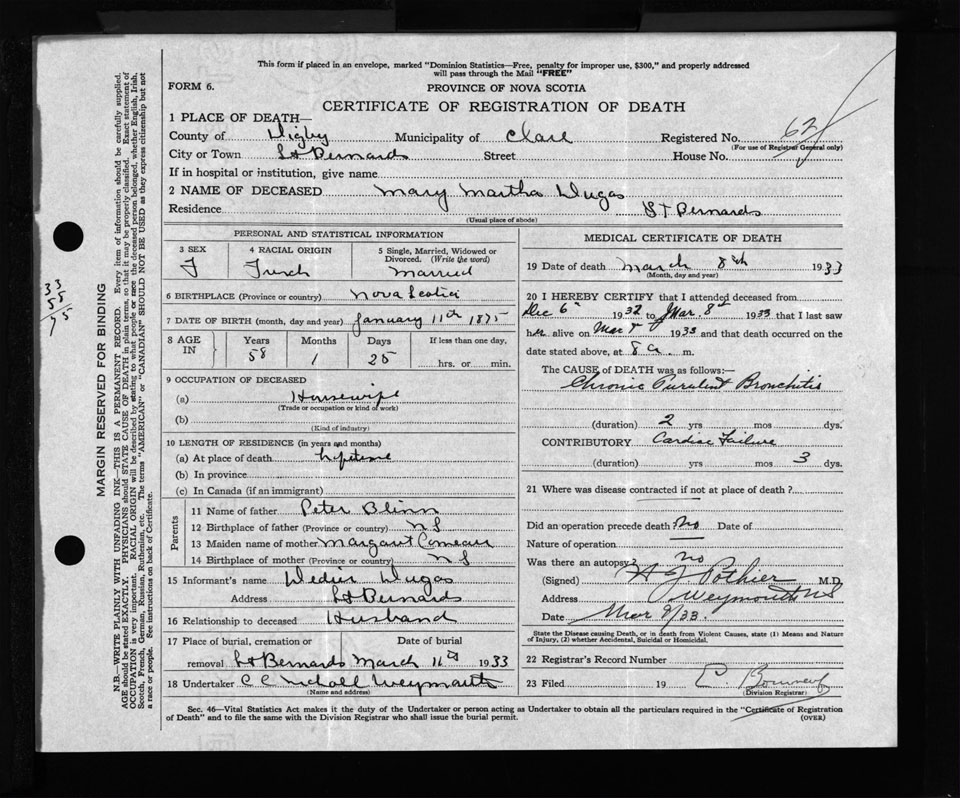 This form if placed in an envelope, marked "Dominion Statistics—Free, penalty for improper use, $300," and properly addressed
will pass through the Mail "FREE"
FORM 6.
PROVINCE OF NOVA SCOTIA
CERTIFICATE OF REGISTRATION OF DEATH
1 PLACE OF DEATH—
County of Digby Municipality of Clare Registered No. 62
(For use of Registrar General only)
City or Town St Bernards Street House No.
If in hospital or institution, give name
2 NAME OF DECEASED Mary Martha Dugas
Residence St Bernards
(Usual place of abode)
PERSONAL AND STATISTICAL INFORMATION
3 SEX
F
4 RACIAL ORIGIN
French
5 Single, Married, Widowed or
Divorced. (Write the word)
Married
6 BIRTHPLACE (Province or country) Nova Scotia
7 DATE OF BIRTH (month, day and year) January 11th 1875
8 AGE IN
Years Months Days If less than one day,
58 1 25 hrs. or min.
9 OCCUPATION OF DECEASED
(a) Housewife
(Trade or occupation or kind of work)
(b)
(Kind of industry)
10 LENGTH OF RESIDENCE (in years and months)
(a) At place of death Lifetime
(b) In province
(c) In Canada (if an immigrant)
Parents
11 Name of father Peter Blinn
12 Birthplace of father (Province or country) NS
13 Maiden name of mother Margaret Comeau
14 Birthplace of mother (Province or country) NS
15 Informant's name Dugas
Address St Bernards
16 Relationship to deceased Husband
17 Place of burial, cremation or Date of burial
removal St Bernards March 11th 1933
18 Undertaker C C Nicholl Weymouth
(Name and address)
MEDICAL CERTIFICATE OF DEATH
19 Date of death March 8th 1933
(Month, day and year)
20 I HEREBY CERTIFY that I attended deceased from
Dec 6 1932 to Mar. 8 1933 that I last saw
her alive on Mar 1933 and that death occurred on the
date stated above, at 8 a. m.
The CAUSE of DEATH was as follows:—
Chronic Purulent Bronchitis
(duration) 2 yrs mos dys.
CONTRIBUTORY Cardiac Failure
(duration) yrs mos 3 dys.
21 Where was disease contracted if not at place of death?
Did an operation precede death? No Date of
Nature of operation
Was there an autopsy? no
(Signed) Pothier M.D.
Address Weymouth NS
Date Mar 9/33.
State the Disease causing Death, or in death from Violent Causes, state (1) Means and Nature
of Injury, (2) whether Accidental, Suicidal or Homicidal.
22 Registrar's Record Number
23 Filed 19
(Division Registrar)
Sec. 46—Vital Statistics Act makes it the duty of the Undertaker or person acting as Undertaker to obtain all the particulars required in the "Certificate of Registration
of Death" and to file the same with the Division Registrar who shall issue the burial permit.
(OVER)
MARGIN RESERVED FOR BINDING
N.B.—WRITE PLAINLY WITH UNFADING INK—THIS IS A PERMANENT RECORD. Every item of information should be carefully supplied.
AGE should be stated EXACTLY. PHYSICIANS should STATE CAUSE OF DEATH in plain terms, so that it may be properly classified. Exact statement of
OCCUPATION is very important. RACIAL ORIGIN will be described by stating to what people or race the deceased person belonged, whether English, Irish,
Scotch, French, German, Russian, Ruthenian, etc. The terms "AMERICAN" or "CANADIAN" SHOULD NOT BE USED as they express citizenship but not
a race or people. See instructions on back of Certificate.
33
55
75